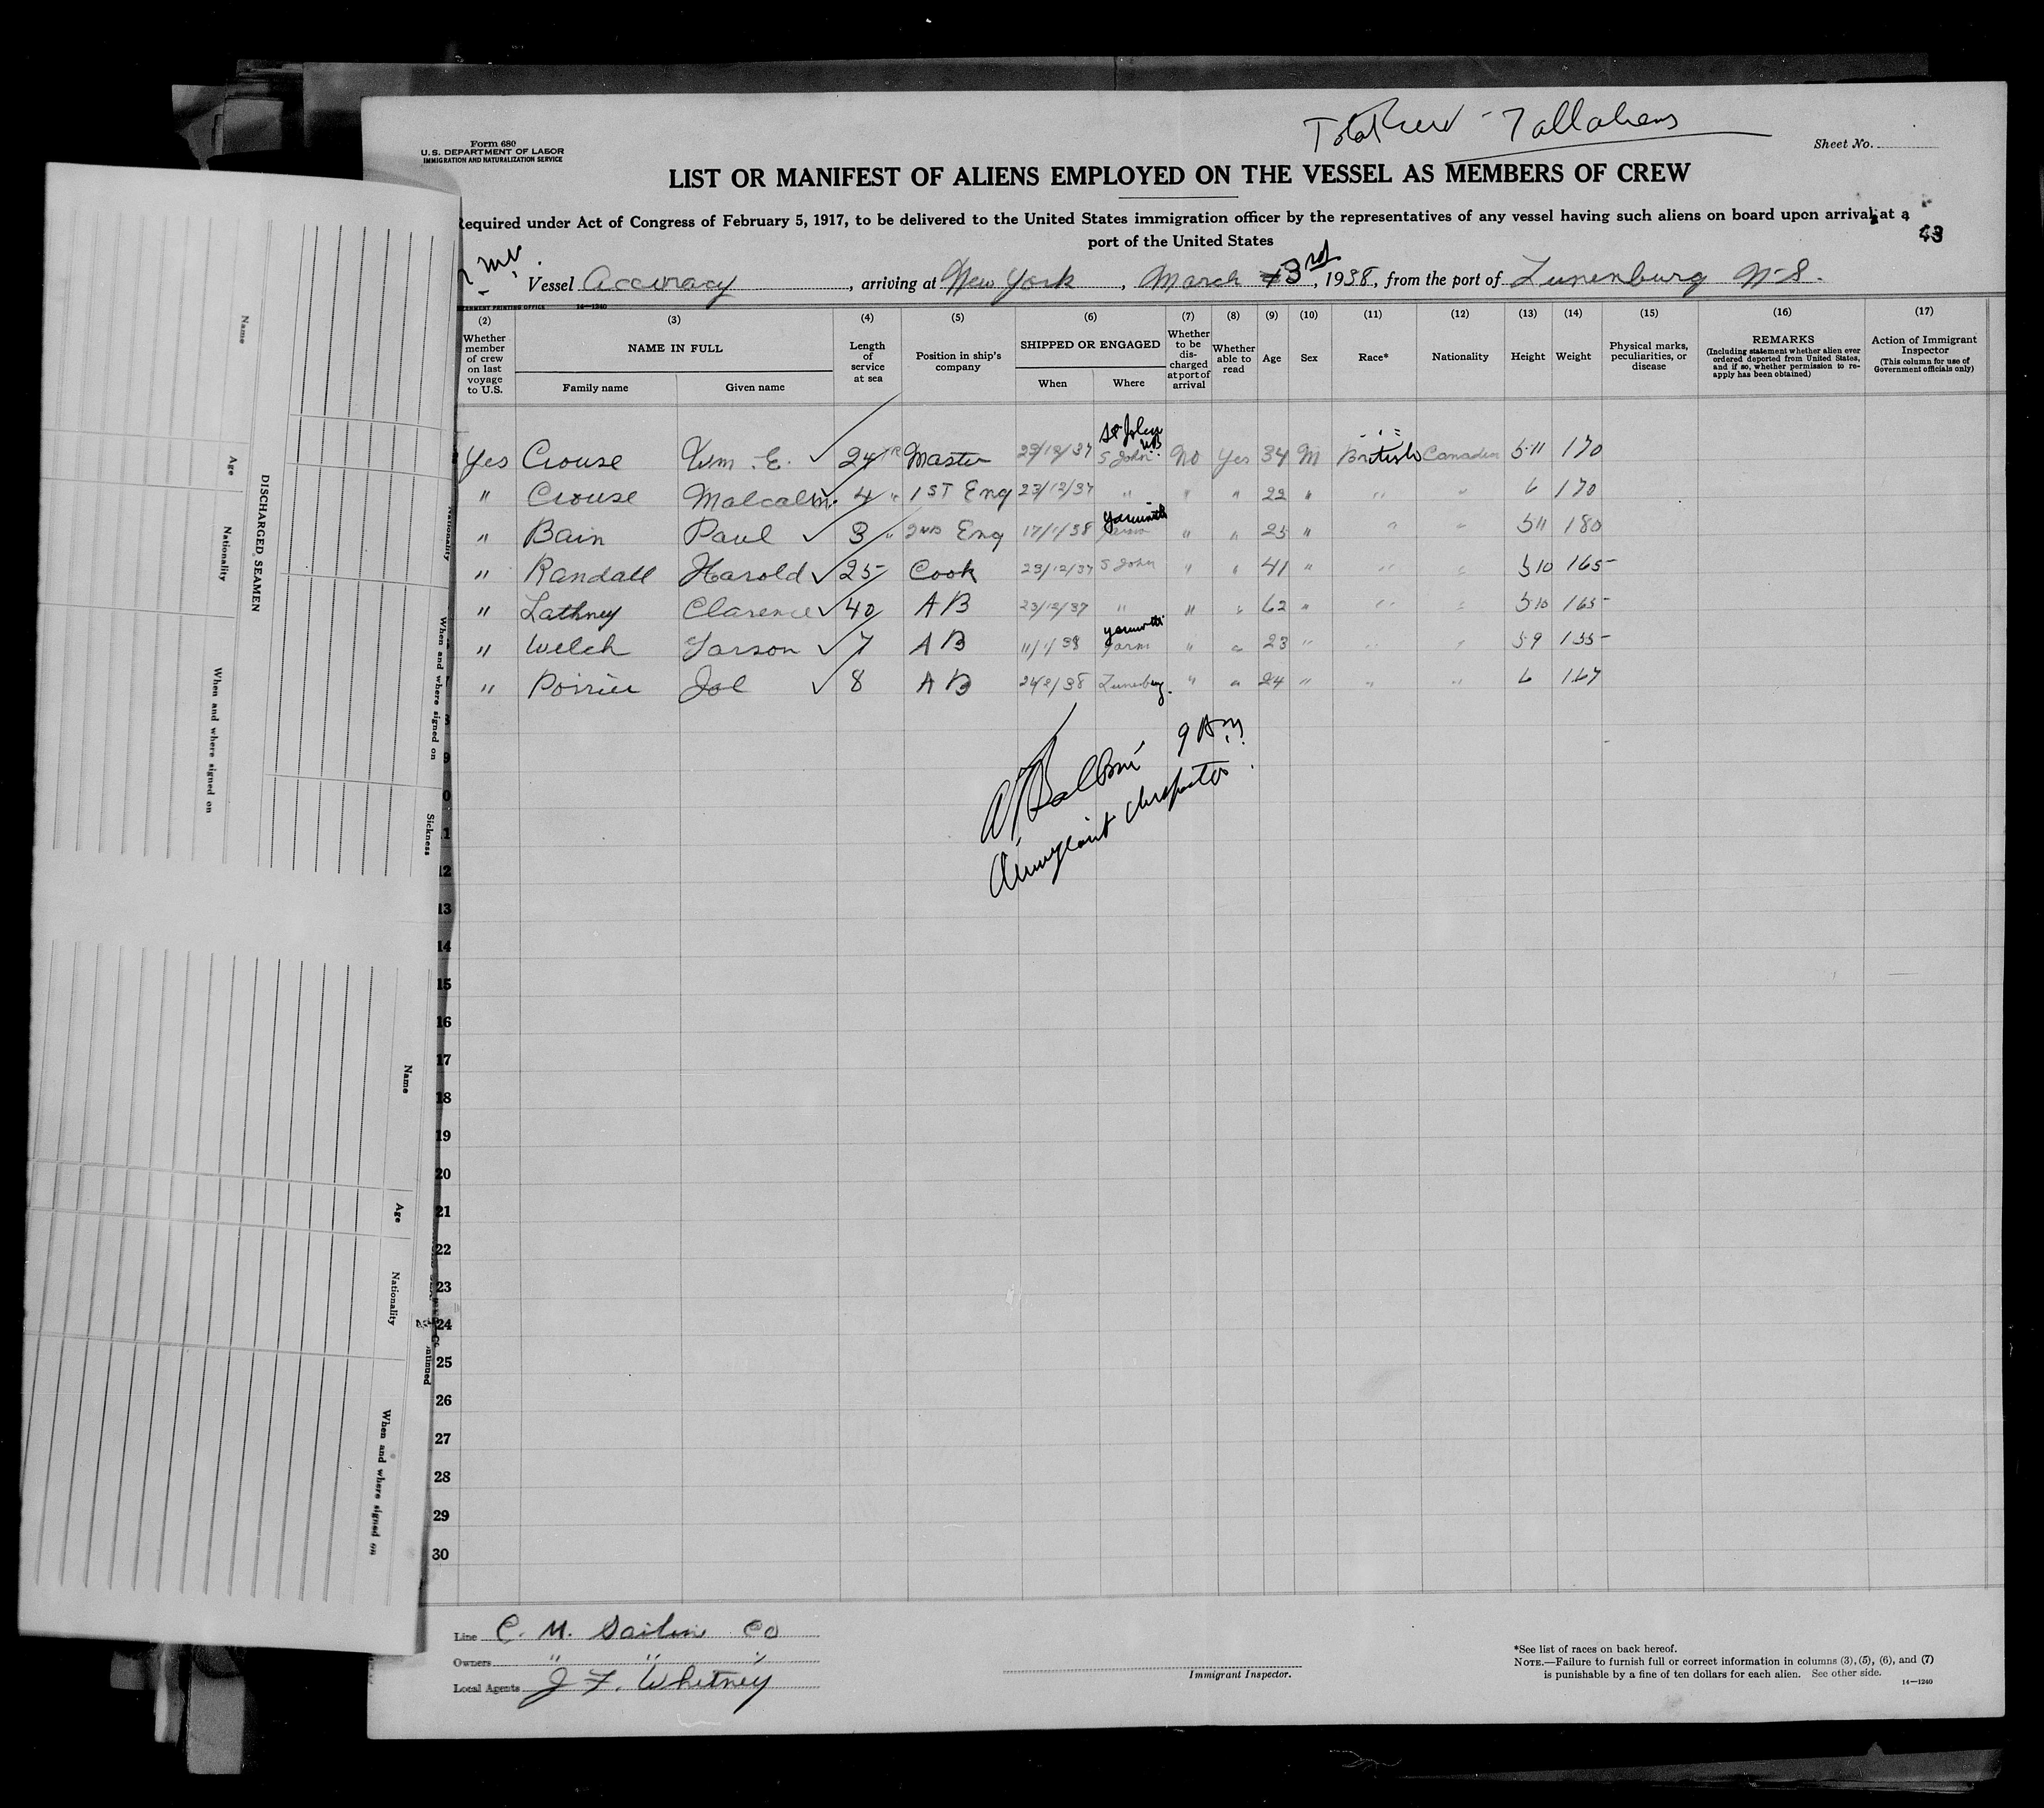 Total Crew - 7 all aliens
Form 680
U.S. DEPARTMENT OF LABOR
IMMIGRATION AND NATURALIZATION SERVICE
Sheet No.
LIST OR MANIFEST OF ALIENS EMPLOYED ON THE VESSEL AS MEMBERS OF CREW
Required under Act of Congress of February 5, 1917, to be delivered to the United States immigration officer by the representatives of any vessel having such aliens on board upon arrival at a
port of the United States
43
Vessel Accuracy, arriving at New York, March 3rd, 1938, from the port of Lunenburg N-S.
14—1240
(2) (3) (4) (5) (6) (7) (8) (9) (10) (11) (12) (13) (14) (15) (16) (17)
Whether member of crew on last voyage to U.S.
NAME IN FULL
Family name
Given name
Length of service at sea
Position in ship's company
SHIPPED OR ENGAGED
When
Where
Whether to be discharged at port of arrival
Whether able to read
Age
Sex
Race*
Nationality
Height
Weight
Physical marks, peculiarities, or disease
REMARKS
(Including statement whether alien ever ordered deported from United States, and if so, whether permission to re-apply has been obtained)
Action of Immigrant Inspector
(This column for use of Government officials only)
St John NB
Yes Crouse Wm. E. 24 YR Master 23/12/37 S John No Yes 34 M British Canadian 5-11 170
" Crouse Malcalm 4 " 1ST Eng 23/12/37 " " " 22 " " " 6 170
Yarmouth
" Bain Paul 3 " 2ND Eng 17/1/38 " " 25 " " " 5 11 180
" Randall Harold 25 Cook 23/12/37 S John " " 41 " " " 5 10 165
" Lathney Clarence 40 AB 23/12/37 " " " 62 " " " 5 10 165
Yarmouth
" Welch Yarson 7 AB 11/1/38 Yarm " " 23 " " " 5 9 155
" Poirier Joe 8 AB 24/2/38 Lunenburg " " 24 " " " 6 167
9 AM
Immigrant Inspector
9
0
11
12
13
14
15
16
17
18
19
20
21
22
23
24
25
26
27
28
29
30
Name
Age
Nationality
When and where signed on
DISCHARGED SEAMEN
Nationality
When and where signed on
Sickness
Name
Age
Nationality
When and where signed on
Line C. M. Sailin Co
Owners " " "
Local Agents J F. Whitney
Immigrant Inspector.
*See list of races on back hereof.
NOTE.—Failure to furnish full or correct information in columns (3), (5), (6), and (7)
is punishable by a fine of ten dollars for each alien. See other side.
14—1240